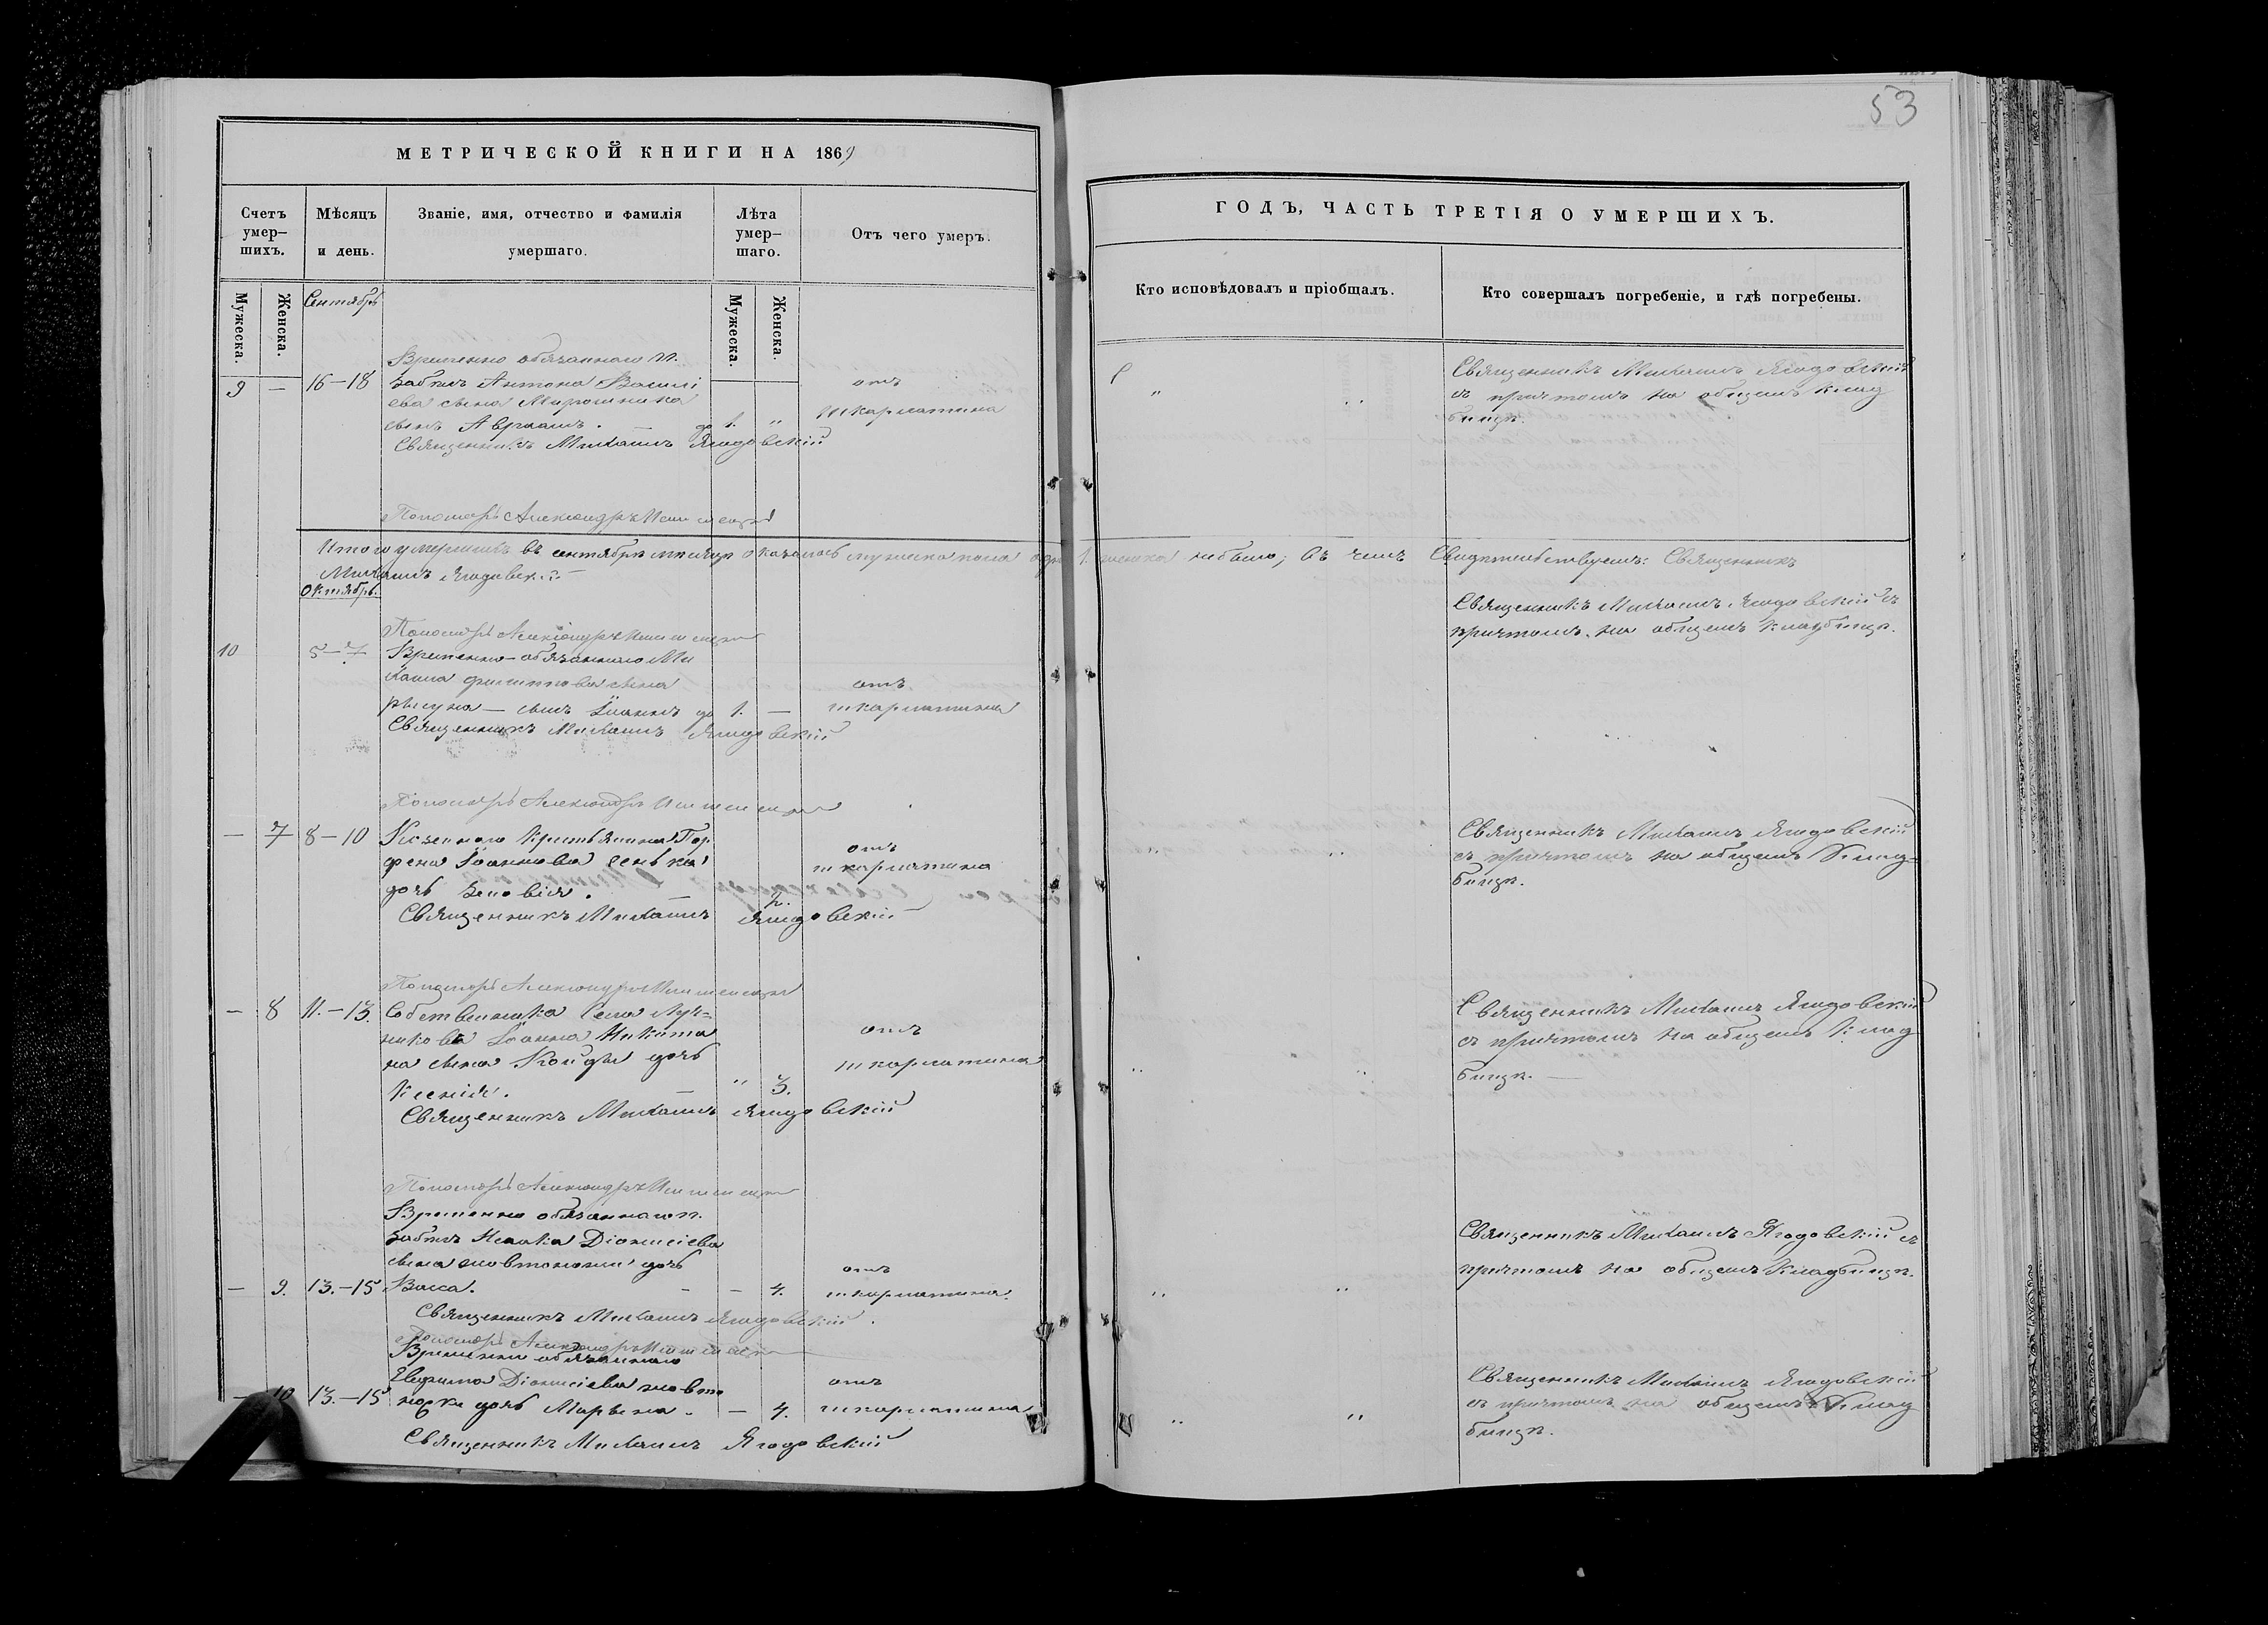 53
МЕТРИЧЕСКОЙ КНИГИ НА 1869
Счетъ умер-шихъ.
Мѣсяцъ и день.
Званіе, имя, отчество и фамилія умершаго.
Лѣта умер-шаго.
Отъ чего умеръ.
Мужеска.
Женска.
Мужеска.
Женска.
Сентябрь
Временно обязаннаго
9 — 16–18 Антона Василі
ева сына Мирошника
сынъ Авраамъ. — до 1. " отъ шкарлатина
Священникъ Михаилъ Ягодовскій
Пономарь Александръ
Итого умершихъ въ сентябрѣ мѣсяцѣ оказалось мужеска пола 1. женска небыло; въ чемъ свидѣтельствуемъ: Священникъ
Михаилъ Ягодовскій
Октябрь.
Пономарь Александръ
10 5–7 Временно-обязаннаго Ми
хаила Филиппова сына
сынъ Іоаннъ до 1. — отъ шкарлатина
Священникъ Михаилъ Ягодовскій
Пономарь Александръ
— 7 8–10 Казеннаго крестьянина Пар
фена Іоаннова
дочь Зеновія. — 2. отъ шкарлатина
Священникъ Михаилъ Ягодовскій
Пономарь Александръ
— 8 11.–13. Собственника села
Іоанна Никити
на сына дочь
Ксенія. — " 3. отъ шкарлатина
Священникъ Михаилъ Ягодовскій
Пономарь Александръ
Временно обязаннаго
Исаака Діонисіева
сына дочь
— 9. 13.–15 Васса. — — 4. отъ шкарлатина.
Священникъ Михаилъ Ягодовскій.
Пономарь Александръ
Временно обязаннаго
Евфима Діонисіева
— 10 13.–15 дочь Марѳена. — 4. отъ шкарлатина
Священникъ Михаилъ Ягодовскій
ГОДЪ, ЧАСТЬ ТРЕТІЯ О УМЕРШИХЪ.
Кто исповѣдовалъ и пріобщалъ.
Кто совершалъ погребеніе, и гдѣ погребены.
Священникъ Михаилъ Ягодовскій
съ причтомъ на общемъ клад
бищѣ.
Священникъ Михаилъ Ягодовскій съ
причтомъ на общемъ кладбищѣ.
Священникъ Михаилъ Ягодовскій
съ причтомъ на общемъ клад-
бищѣ.
Священникъ Михаилъ Ягодовскій
съ причтомъ на общемъ клад
бищѣ. —
Священникъ Михаилъ Ягодовскій съ
причтомъ на общемъ кладбищѣ.
Священникъ Михаилъ Ягодовскій
съ причтомъ на общемъ клад
бищѣ.